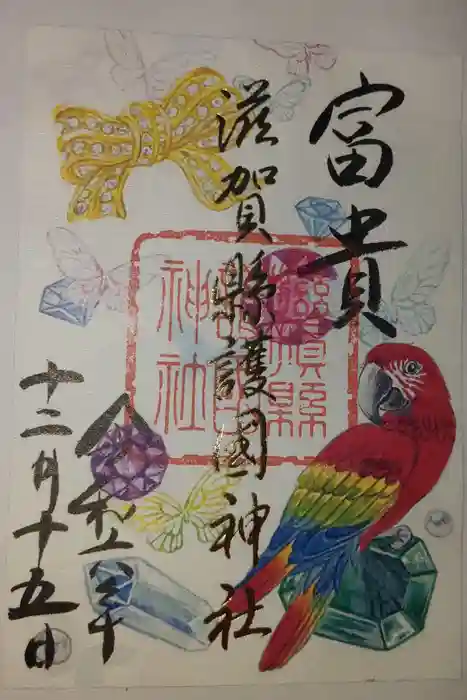 富貴
滋賀縣護國神社
滋賀縣護國神社
令和六年
十二月十五日